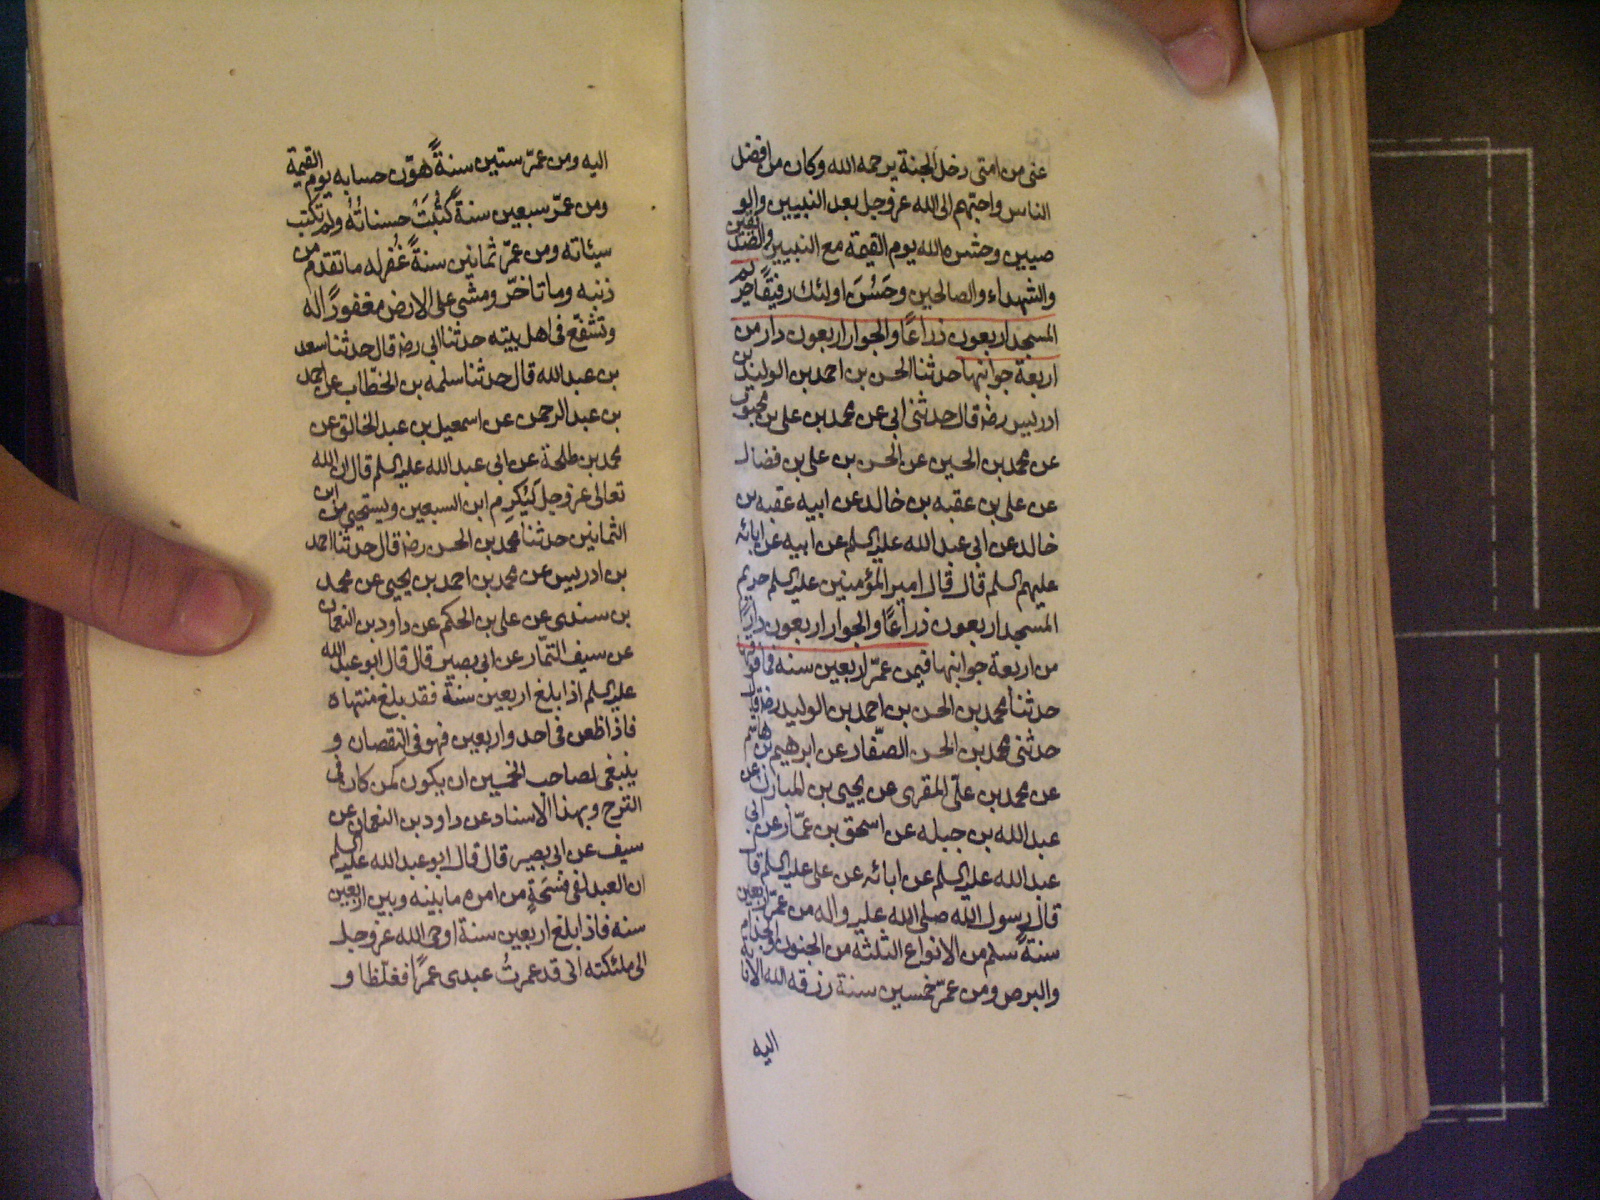 عنى من امتى دخل الجنة يرحمه الله وكان من افضل
الناس واحبهم الى الله عز وجل بعد النبيين والو
صيين وحشره الله يوم القيمة مع النبيين والصديقين
والشهداء والصالحين وحَسُنَ اولئك رفيقًا حريم
المسجد اربعون ذراعًا والجوار اربعون دار من
اربعة جوانبها حدثنا الحسن بن احمد بن الوليد بن
ادريس رضه قال حدثنى ابى عن محمد بن على بن محبوب
عن محمد بن الحسين عن الحسن بن على بن فضال
عن على بن عقبه بن خالد عن ابيه عقبه بن
خالد عن ابى عبد الله عليه السلم عن ابيه عن ابائه
عليهم السلم قال قال امير المؤمنين عليه السلم حريم
المسجد اربعون ذراعًا والجوار اربعون دارًا
من اربعة جوانبها فيمن عمّر اربعين سنه فما فوقها
حدثنا محمد بن الحسن بن احمد بن الوليد رضه قال
حدثنى محمد بن الحسن الصفّار عن ابرهيم بن هاشم
عن محمد بن علىّ المقرى عن يحيى بن المبارك عن
عبد الله بن جبله عن اسحق بن عمّار عن ابى
عبد الله عليه السلم عن ابائه عن على عليه السلم قال
قال رسول الله صلى الله عليه واله من عمّر اربعين
سنةً سلم من الانواع الثلثه من الجنون والجذام
والبرص ومن عمّر خمسين سنة رزقه الله الانابة
اليه
اليه ومن عمّر ستين سنةً هوّن حسابه يوم القيمة
ومن عمّر سبعين سنةً كُتبَتُ حسناتُهُ ولم تكتب
سيئاته ومن عمّر ثمانين سنةً غُفر له ما تقدم من
ذنبه وما تاخّر ومشى على الارض مغفورًا له
وتشفّع فى اهل بيته حدثنا ابى رضه قال حدثنا سعد
بن عبد الله قال حدثنا سلمه بن الخطّاب عن احمد
بن عبد الرحمن عن اسمعيل بن عبد الخالق عن
محمد بن طلحة عن ابى عبد الله عليه السلم قال ان الله
تعالى عز وجل لَيُكرِم ابن السبعين ويستحيى من ابن
الثمانين حدثنا محمد بن الحسن رضه قال حدثنا احمد
بن ادريس عن محمد بن احمد بن يحيى عن محمد
بن سندى عن على بن الحكم عن داود بن النعمان
عن سيف التمّار عن ابى بصير قال قال ابو عبد الله
عليه السلم اذا بلغ اربعين سنة فقد بلغ منتهاه
فاذا ظعن فى احد واربعين فهو فى النقصان و
ينبغى لصاحب الخمسين ان يكون كمن كان فى
النزع وبهذا الاسناد عن داود بن النعمان عن
سيف عن ابى بصير قال قال ابو عبد الله عليه السلم
ان العبد لفى فسْحَةٍ من امره ما بينه وبين اربعين
سنه فاذا بلغ اربعين سنة اوحى الله عز وجل
الى ملئكته انى قد عمرتُ عبدى عمرًا فغلّظا و